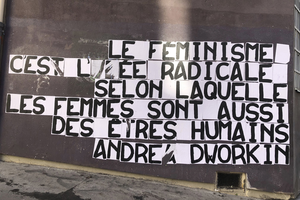 LE FÉMINISME
C'EST L'IDÉE RADICALE
SELON LAQUELLE
LES FEMMES SONT AUSSI
DES ÊTRES HUMAINS
ANDREA DWORKIN